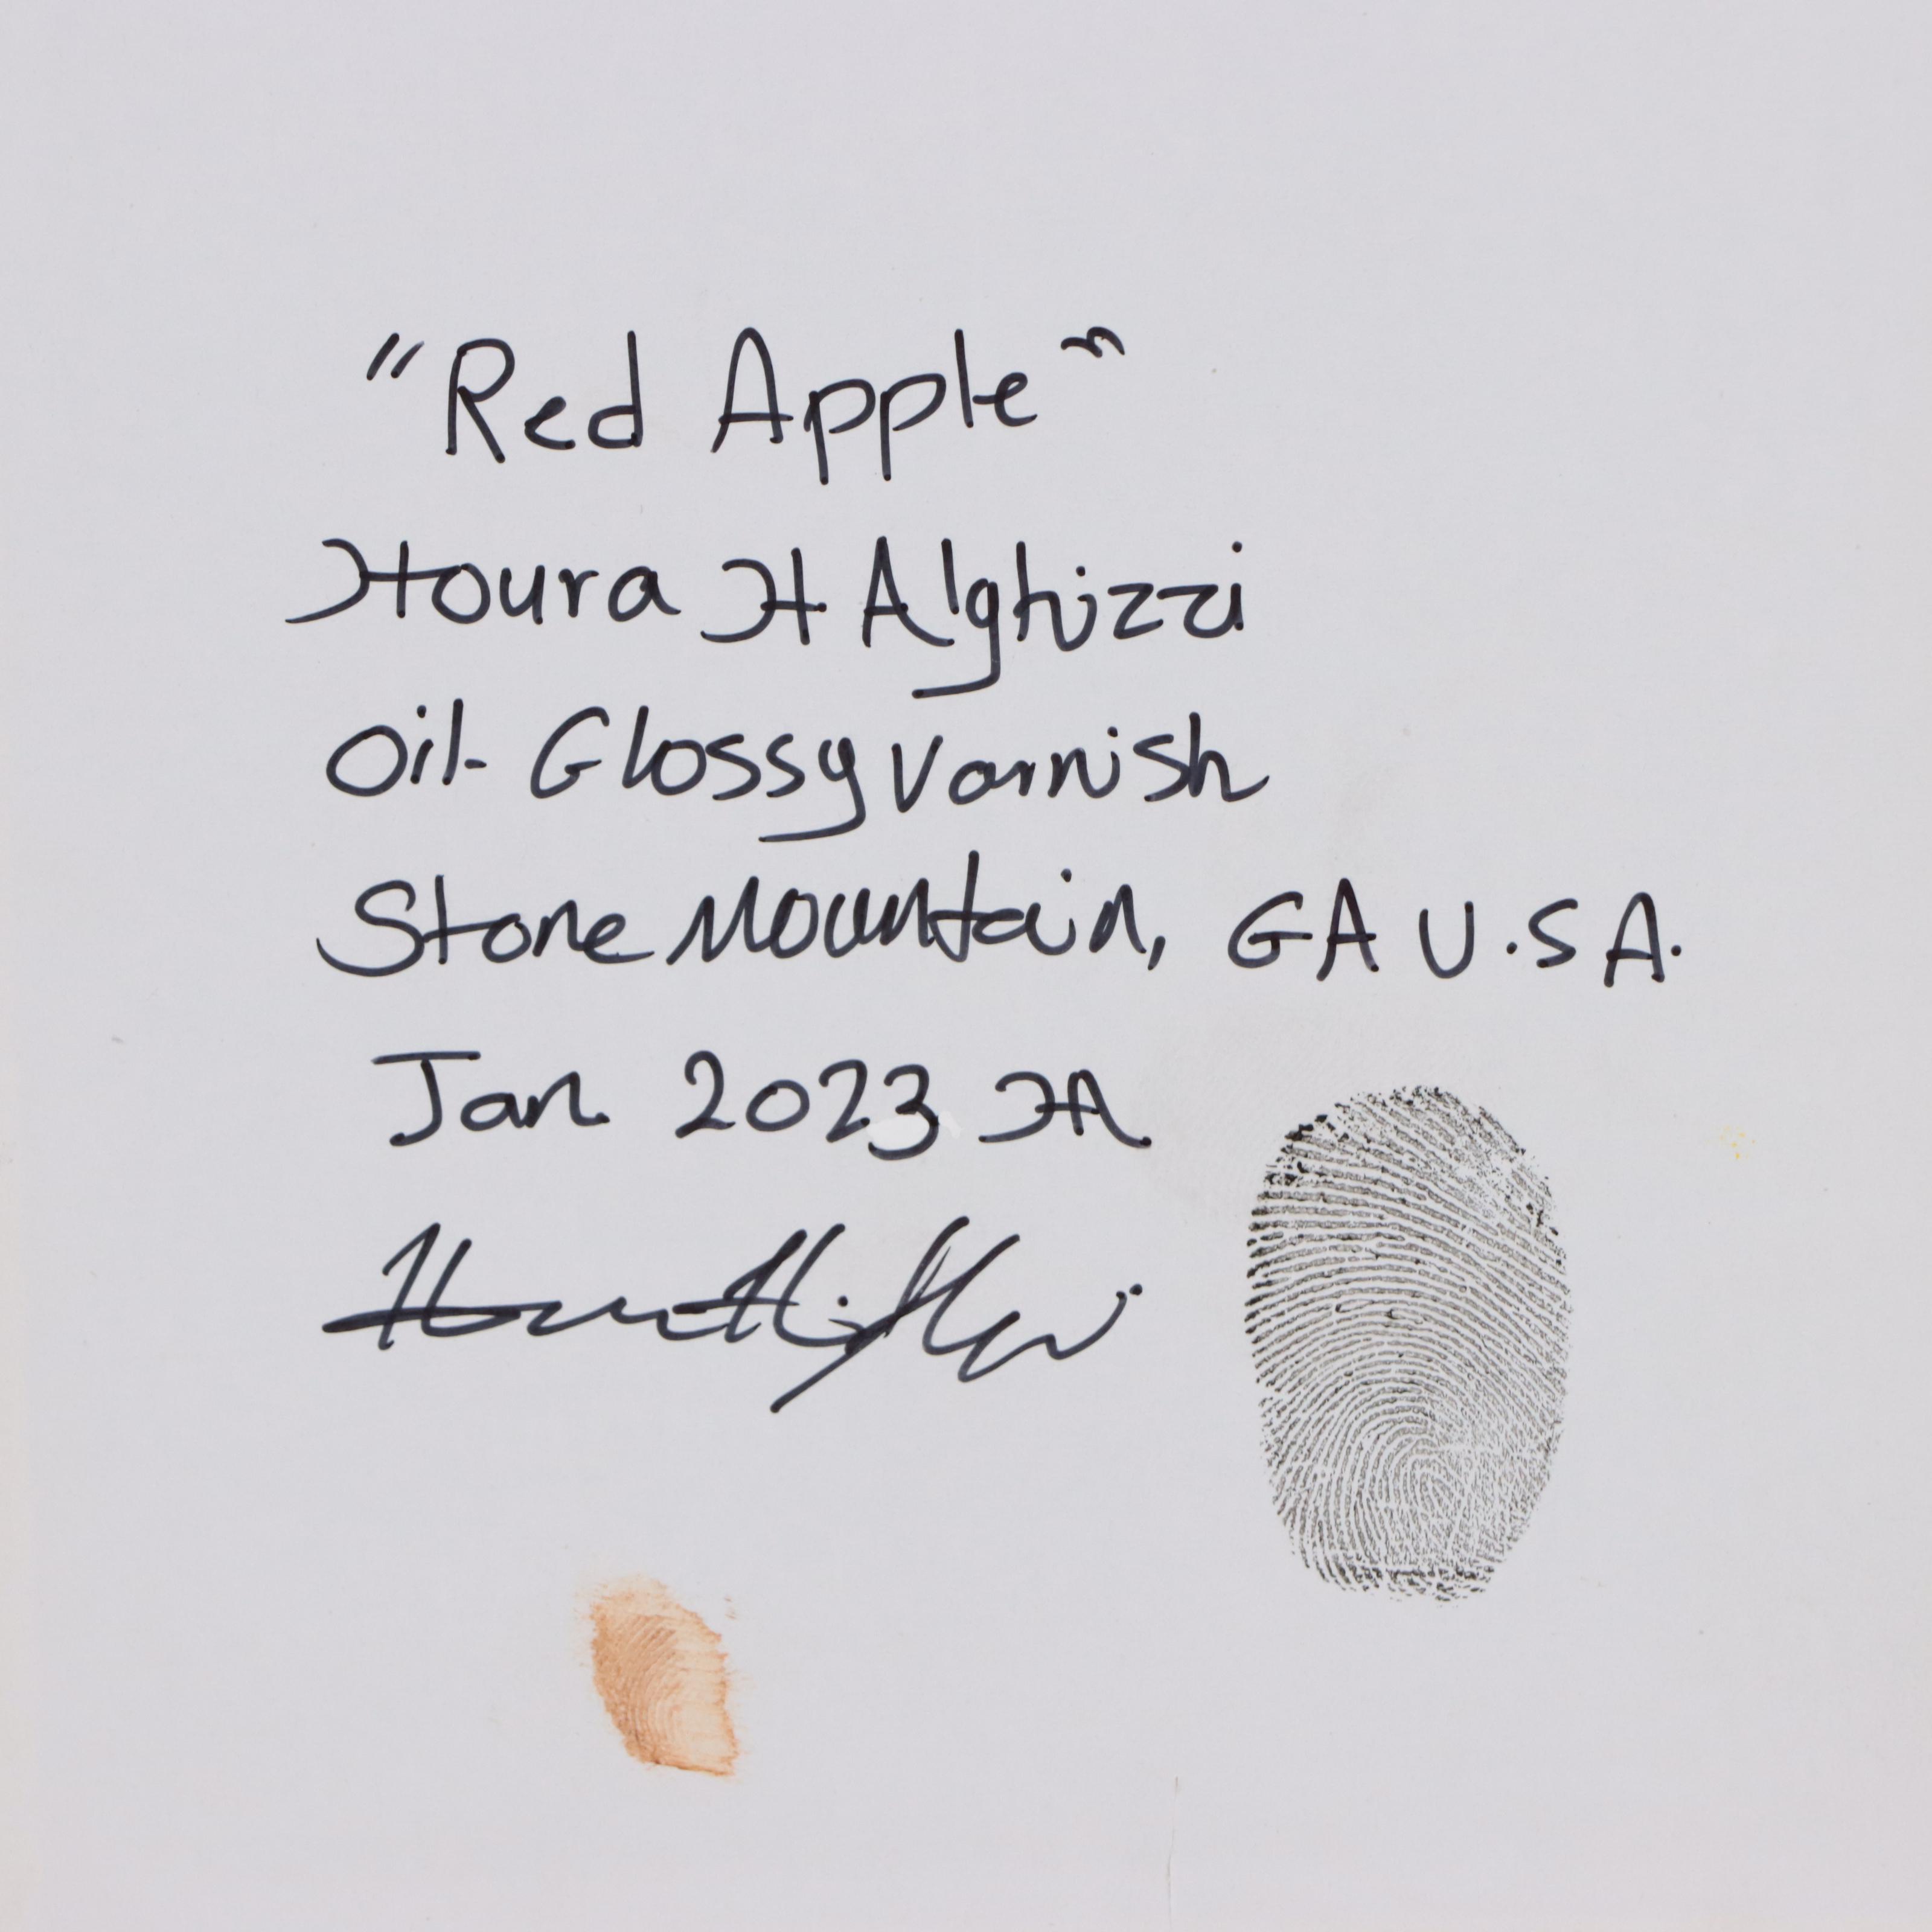 "Red Apple"
Houra H Alghizzi
Oil - Glossy Varnish
Stone Mountain, GA U.S.A.
Jan. 2023 HA